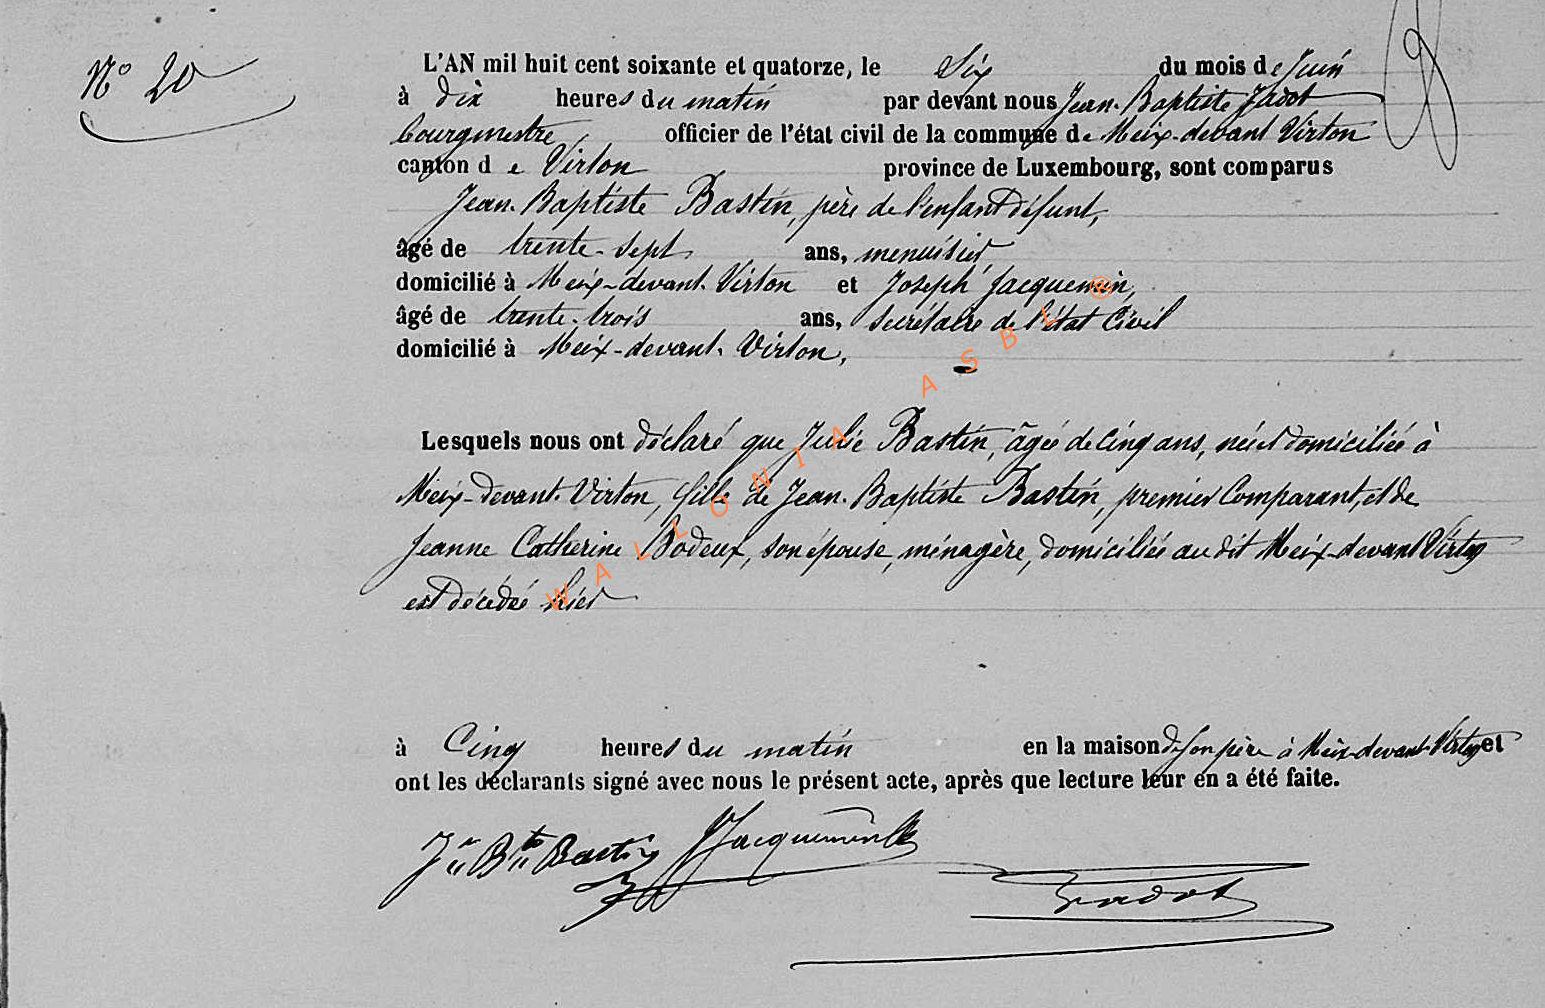 N° 20
L'AN mil huit cent soixante et quatorze, le Six du mois de Juin
à dix heures du matin par devant nous Jean-Baptiste Jadot
bourgmestre officier de l'état civil de la commune de Meix-devant Virton
canton de Virton province de Luxembourg, sont comparus
Jean-Baptiste Bastin, père de l'enfant défunt,
âgé de trente-sept ans, menuisier
domicilié à Meix-devant-Virton et Joseph Jacquemin,
âgé de trente-trois ans, secrétaire de l'état Civil
domicilié à Meix-devant-Virton,
Lesquels nous ont déclaré que Julie Bastin, âgée de cinq ans, née et domiciliée à
Meix-devant-Virton, fille de Jean-Baptiste Bastin, premier Comparant, et de
Jeanne Catherine Bodeux, son épouse, ménagère, domiciliés au dit Meix-devant Virton
est décédée hier
à Cinq heures du matin en la maison de son père à Meix-devant-Virton et
ont les déclarants signé avec nous le présent acte, après que lecture leur en a été faite.
Jn Bte Bastin Jacquemin
Jadot
WALLONIA ASBL ®